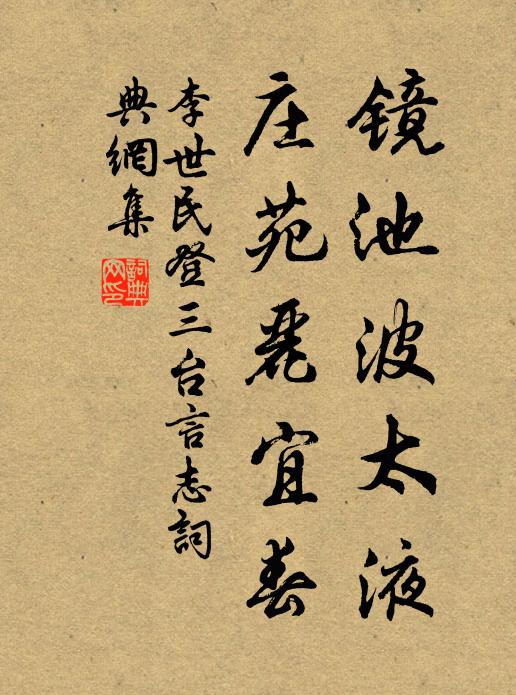 镜池波太液
庄苑丽宜春
李世民登三台言志詞
典網集
詞典
网印